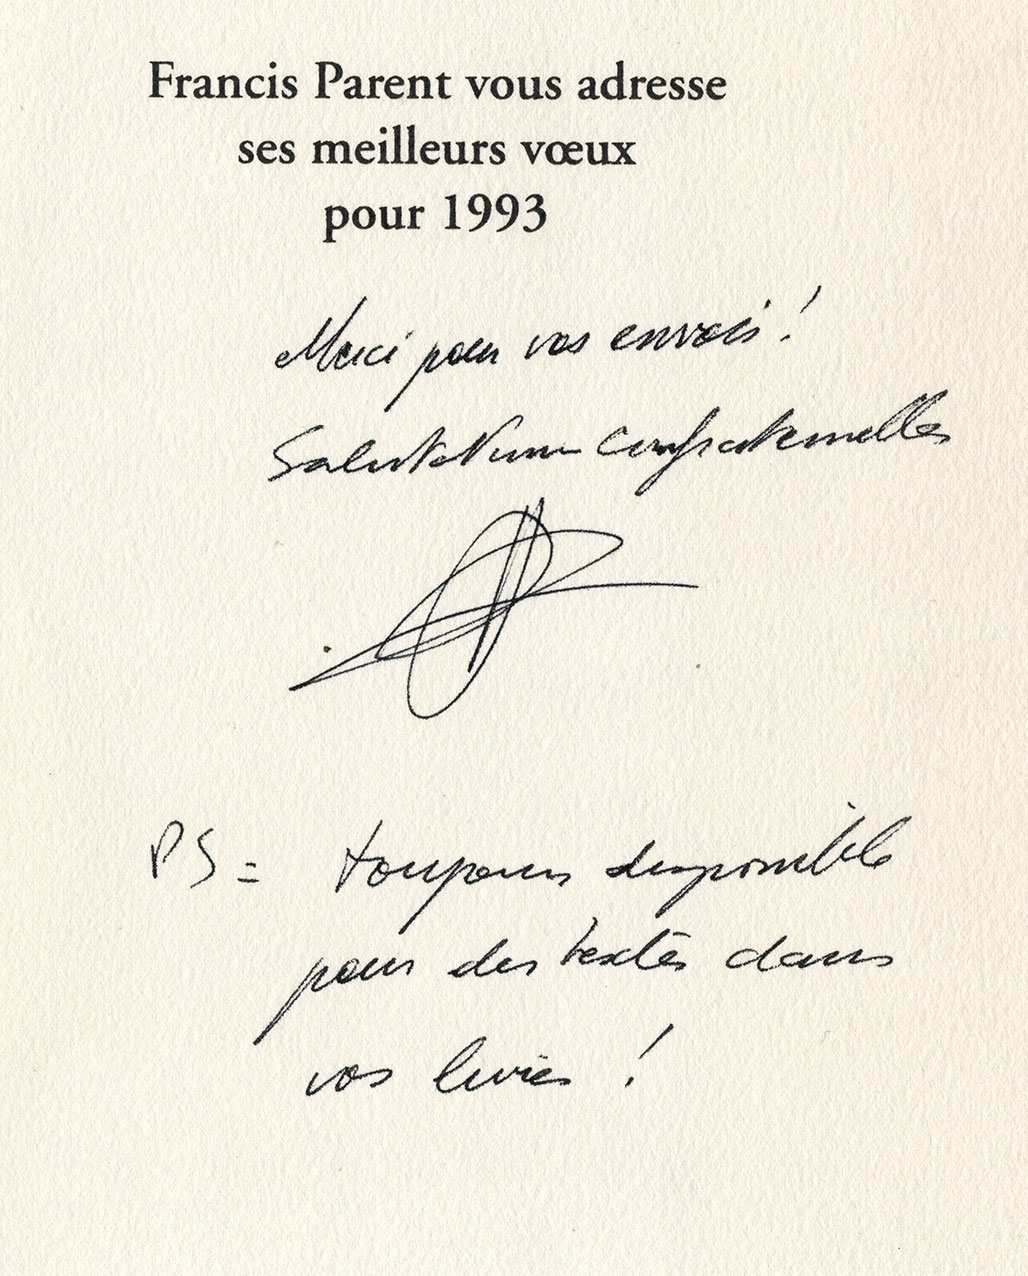 Francis Parent vous adresse
ses meilleurs vœux
pour 1993
Merci pour vos envois !
Salutations confraternelles
PS = toujours disponible
pour des textes dans
vos livres !